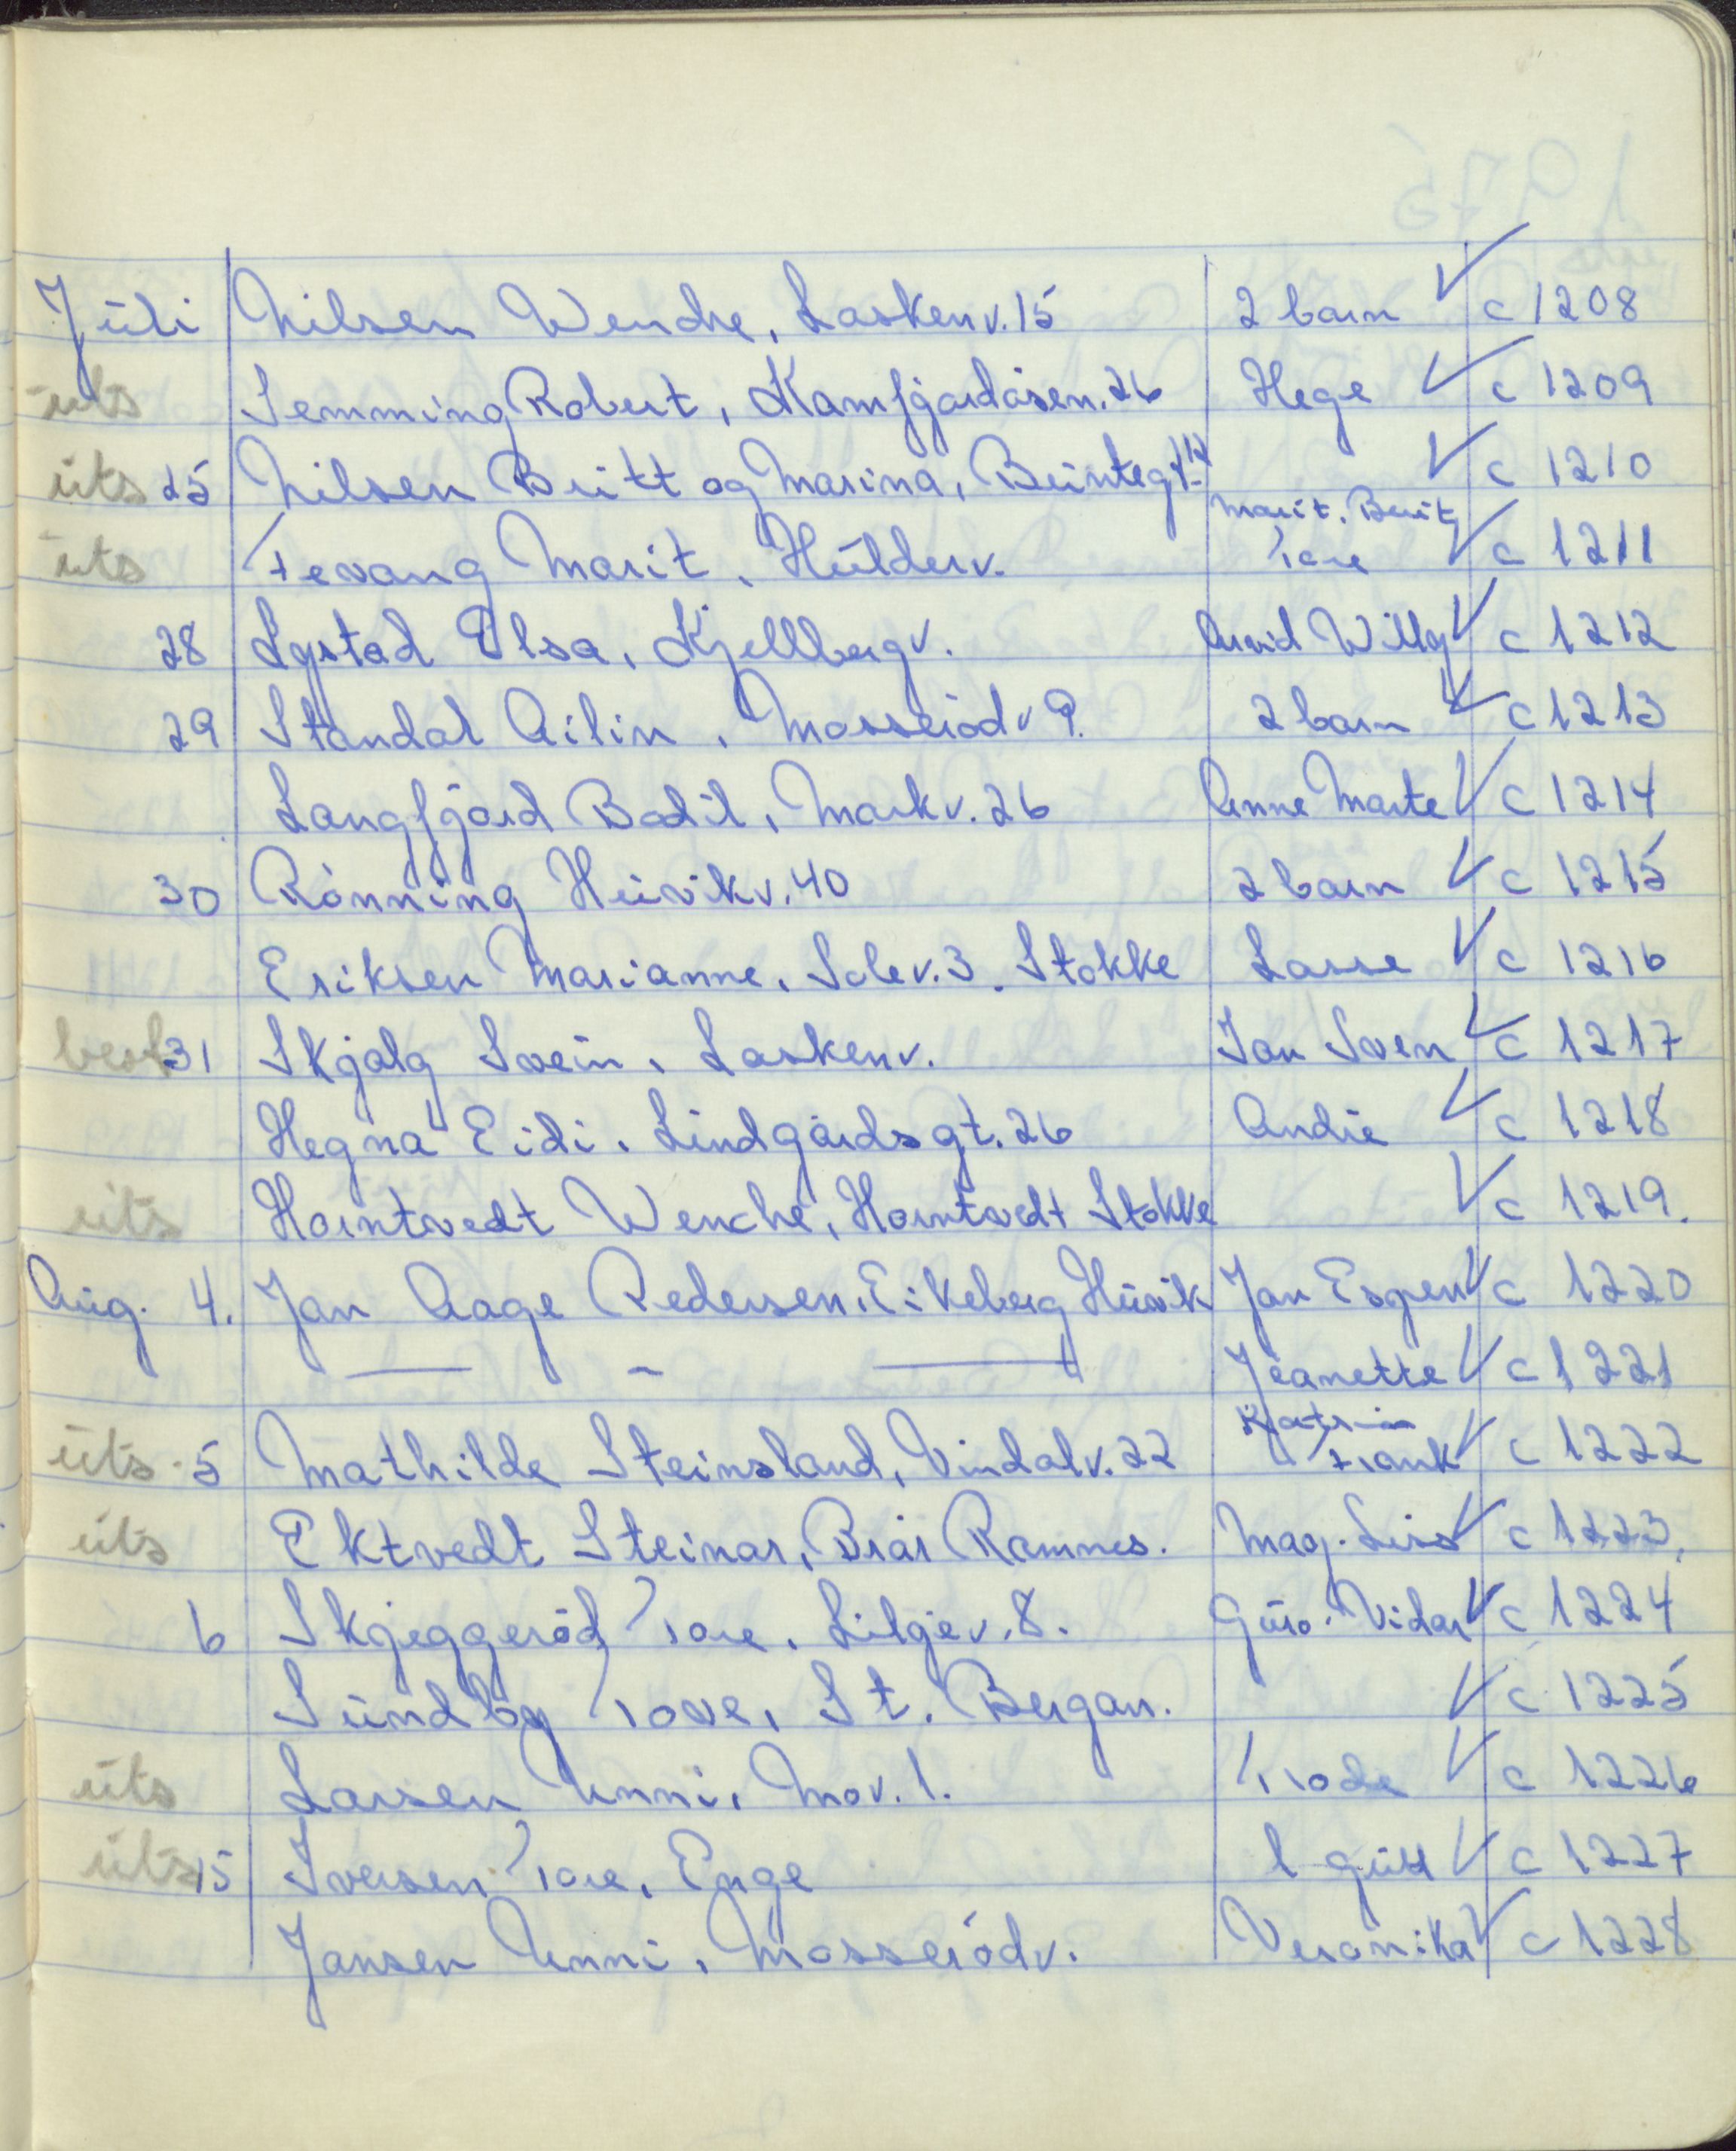 Juli Nilsen Wenche, Laskenv. 15 2 barn ✓ c 1208
uts Semming Robert, Kamfjordåsen. 26 Hege ✓ c 1209
uts 25 Nilsen Britt og Marina, Bruntegt 12 ✓ c 1210
uts Fevang Marit, Hulderv. Marit. Berit, Tore ✓ c 1211
28 Lystad Elsa, Kjellbergv. Arvid Willy ✓ c 1212
29 Standal Ailin, Mosserødv 9. 2 barn ✓ c 1213
Langfjord Bodil, Markv. 26 Anne Marte ✓ c 1214
30 Rønning Husvikv. 40 2 barn ✓ c 1215
Eriksen Marianne, Solev. 3. Stokke Lasse ✓ c 1216
31 Skjalg Svein, Laskenv. Jan Sven ✓ c 1217
Hegna Eidi. Lindgårdsgt. 26 André ✓ c 1218
uts Horntvedt Wenche, Horntvedt Stokke ✓ c 1219.
Aug. 4. Jan Aage Pedersen. Eikeberg Husvik Jan Espen ✓ c 1220
— - — Jeanette ✓ c 1221
uts. 5 Mathilde Steinsland, Vindalv. 22 Katrin Frank ✓ c 1222
uts Ektvedt Steinar, Brår Ramnes. Mag. Liss ✓ c 1223.
6 Skjeggerød Tore. Liljev. 8. Guro. Vidar ✓ c 1224
Sundby Tove, St. Bergan. ✓ c 1225
uts Larsen Unni, Mov. 1. Frode ✓ c 1226
uts 15 Iversen Tore, Enge 1 gutt ✓ c 1227
Jansen Unni, Mosserødv. Veronika ✓ c 1228